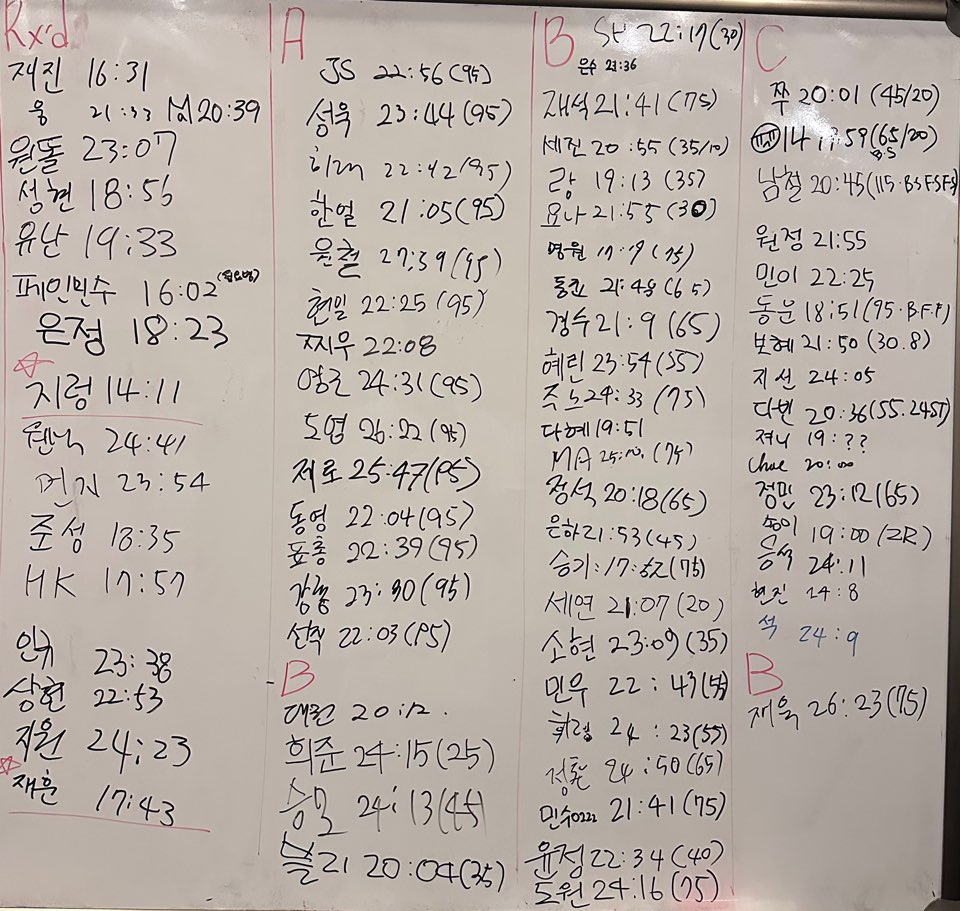 Rx'd
재진 16:31
웅 21:33 M 20:39
원돌 23:07
성현 18:56
유난 19:33
페인민수 16:02
은정 18:23
지렁 14:11
24:41
먼지 23:54
준성 18:35
HK 17:57
인규 23:38
상현 22:53
지원 24:23
재훈 17:43
A
JS 22:56 (95)
성욱 23:44 (95)
희래 22:42 (95)
한얼 21:05 (95)
윤철 27:39 (95)
현일 22:25 (95)
찌우 22:08
영근 24:31 (95)
도영 26:22 (95)
제로 25:47 (95)
동영 22:04 (95)
표총 22:39 (95)
23:30 (95)
선칙 22:03 (95)
B
대권 20:12.
희준 24:15 (25)
승모 24:13 (45)
블리 20:04 (35)
B SH 22:17 (30)
은수 23:36
재석 21:41 (75)
세진 20:55 (35/10)
랑 19:13 (35)
요나 21:55 (30)
명원 17:19 (75)
동진 21:48 (65)
경수 21:9 (65)
혜린 23:54 (55)
즈느 24:33 (75)
다혜 19:51
MA 25:10. (75)
정석 20:18 (65)
은하 21:53 (45)
승기: 17:52 (75)
세연 21:07 (20)
소현 23:09 (35)
민우 22:43 (55)
휘령 24:23 (55)
24:50 (65)
민수0222 21:41 (75)
윤정 22:34 (40)
도원 24:16 (75)
C
쭈 20:01 (45/20)
:59 (65/20)
B.S
남철 20:45 (115.BSFSF.S
원정 21:55
민이 22:25
동운 18:51 (95.B.F.F)
보혜 21:50 (30.8)
지선 24:05
다빈 20:36 (55.24ST)
져니 19:??
Chae 20:00
정민 23:12 (65)
송이 19:00 (2R)
승석 24:11
현진 24:8
석 24:9
B
재욱 26:23 (75)